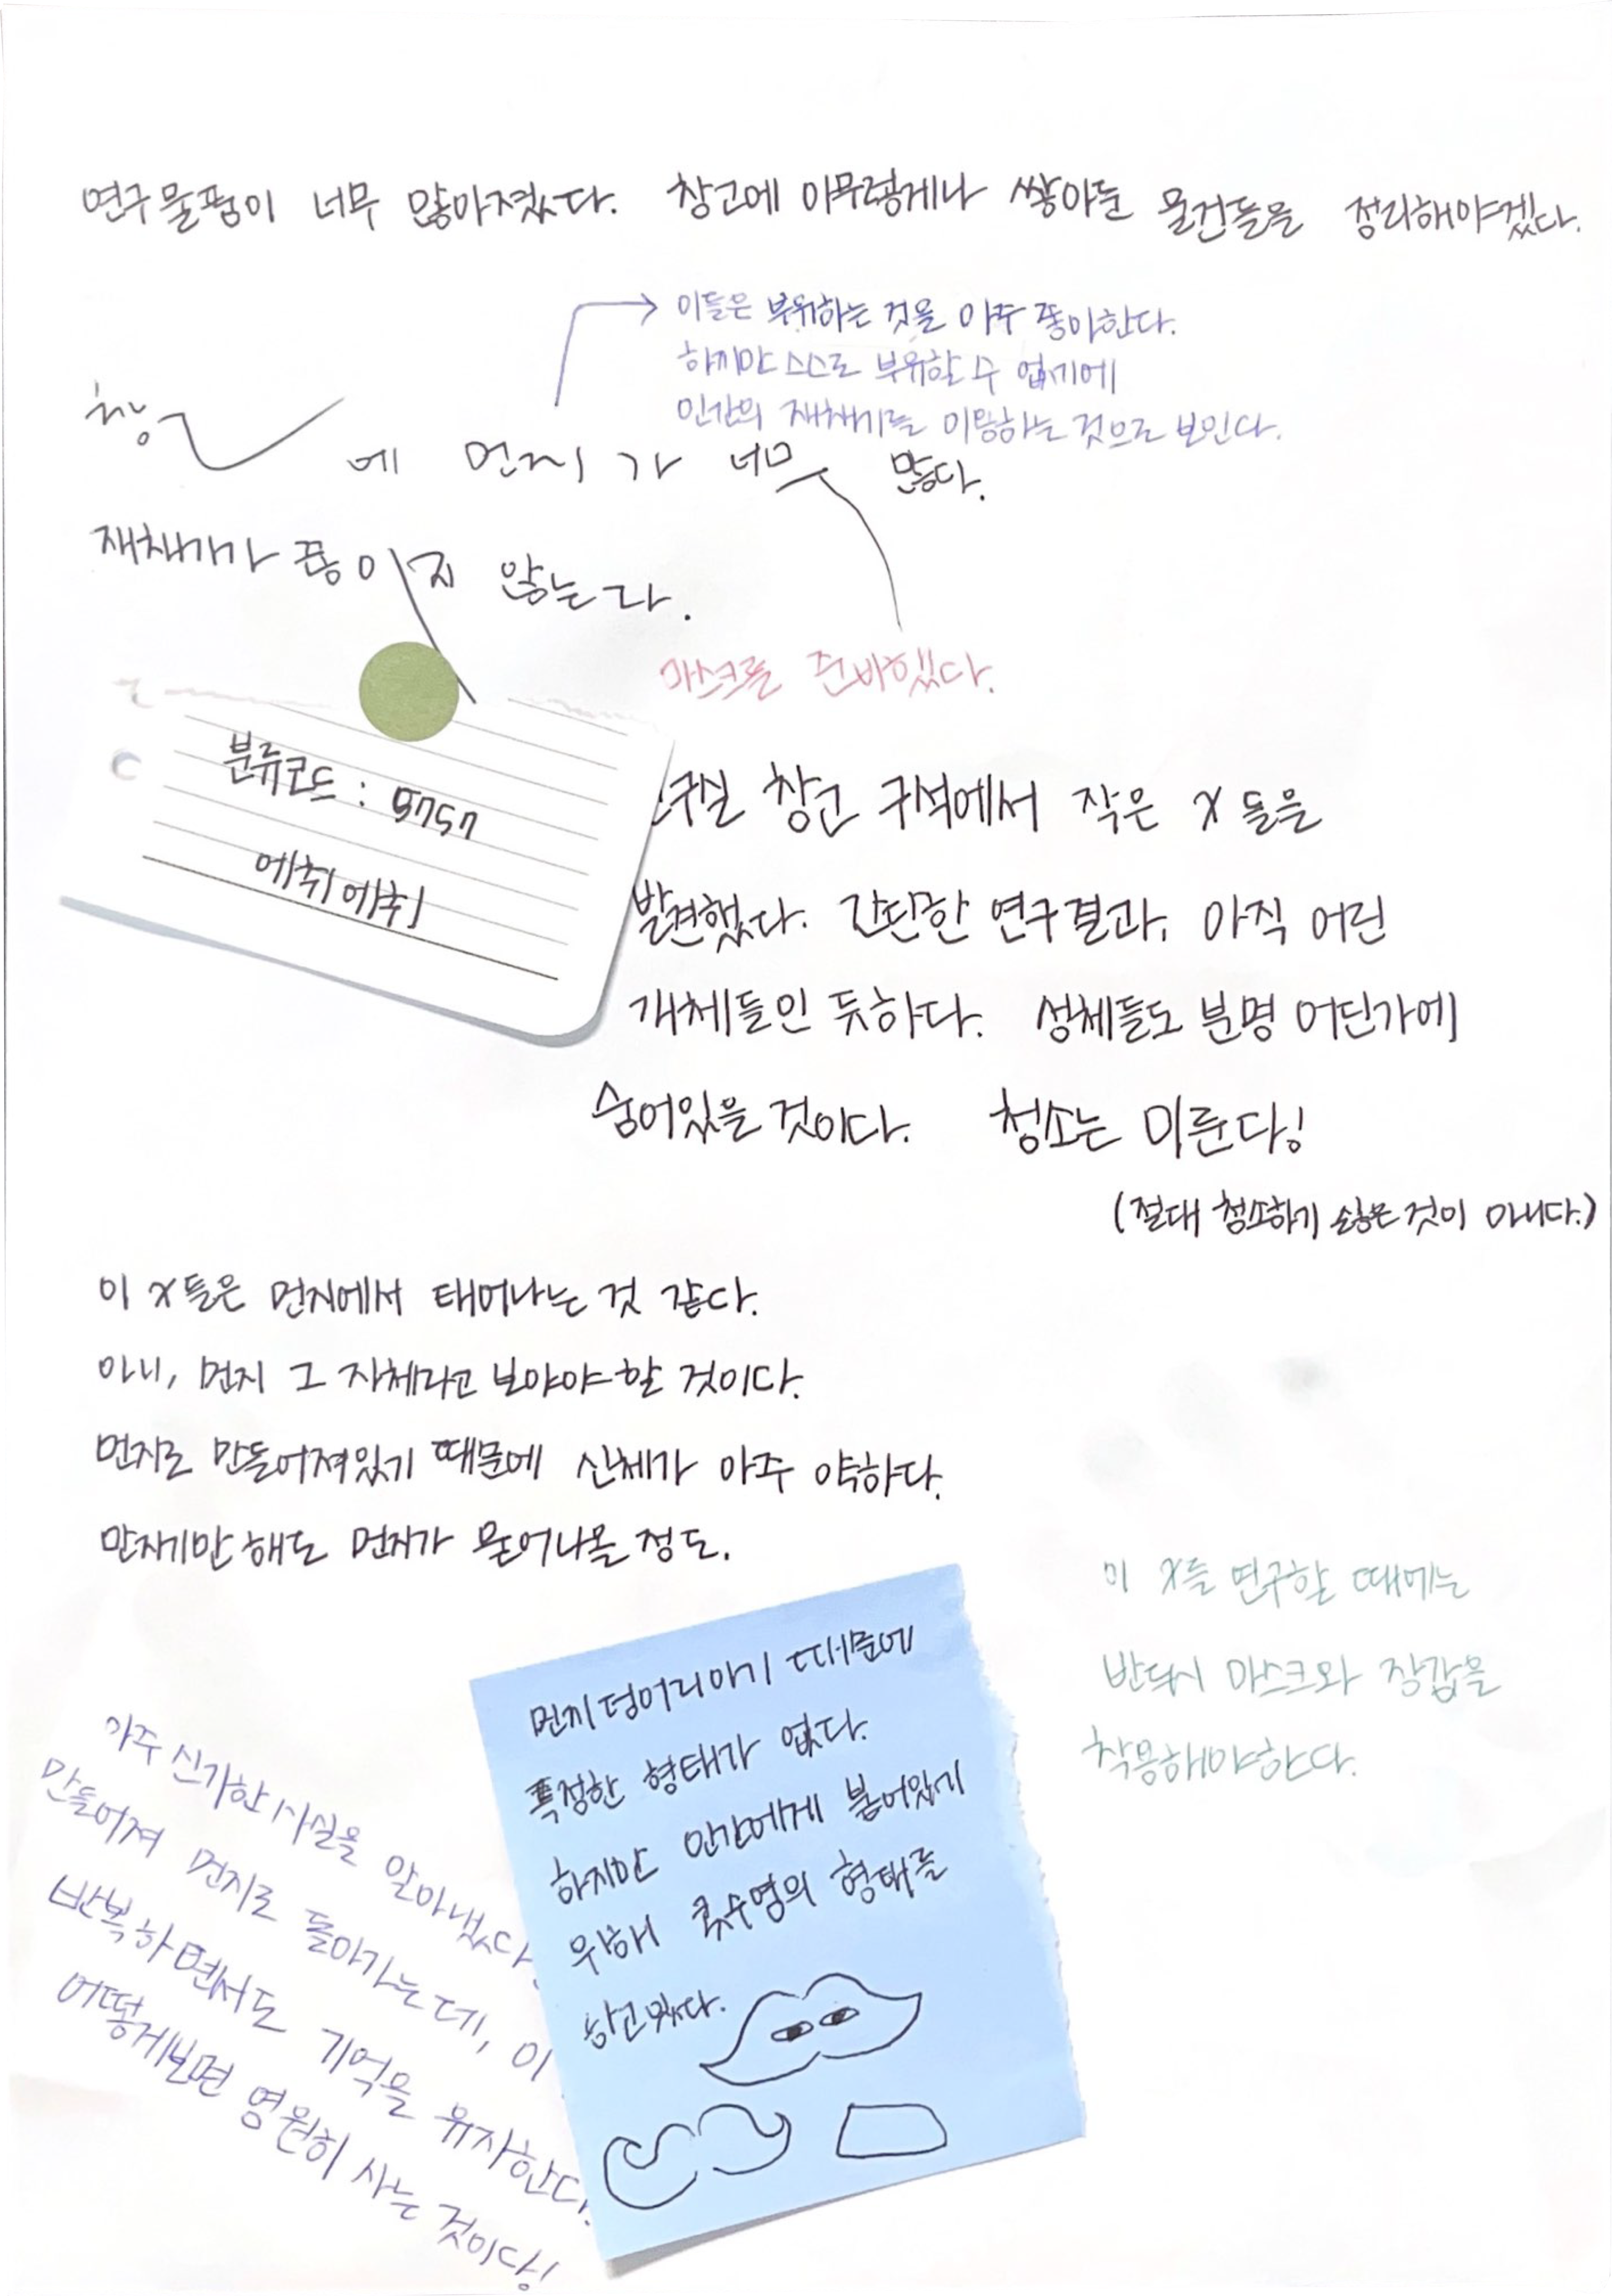 연구물품이 너무 많아졌다. 창고에 아무렇게나 쌓아둔 물건들을 정리해야겠다.
이들은 부유하는 것을 아주 좋아한다.
하지만 스스로 부유할 수 없기에
인간의 재채기를 이용하는 것으로 보인다.
창 에 먼지가 너무 많다.
재채기가 끊이지 않는다.
마스크를 준비했다.
분류코드 : 5757
에취에취
구실 창고 구석에서 작은 X들을
발견했다. 간단한 연구결과, 아직 어린
개체들인 듯하다. 성체들도 분명 어딘가에
숨어있을 것이다. 청소는 미룬다!
(절대 청소하기 싫은 것이 아니다.)
이 X들은 먼지에서 태어나는 것 같다.
아니, 먼지 그 자체라고 보아야 할 것이다.
먼지로 만들어져있기 때문에 신체가 아주 약하다.
만지기만 해도 먼지가 묻어나올 정도.
이 X들 연구할 때에는
반드시 마스크와 장갑을
착용해야한다.
먼지덩어리이기 때문에
특정한 형태가 없다.
하지만 인간에게 붙어있기
위해 콧수염의 형태를
하고있다.
아주 신기한 사실을 알아냈다.
만들어져 먼지로 돌아가는데, 이
반복하면서도 기억을 유지한다.
어떻게보면 영원히 사는 것이다!